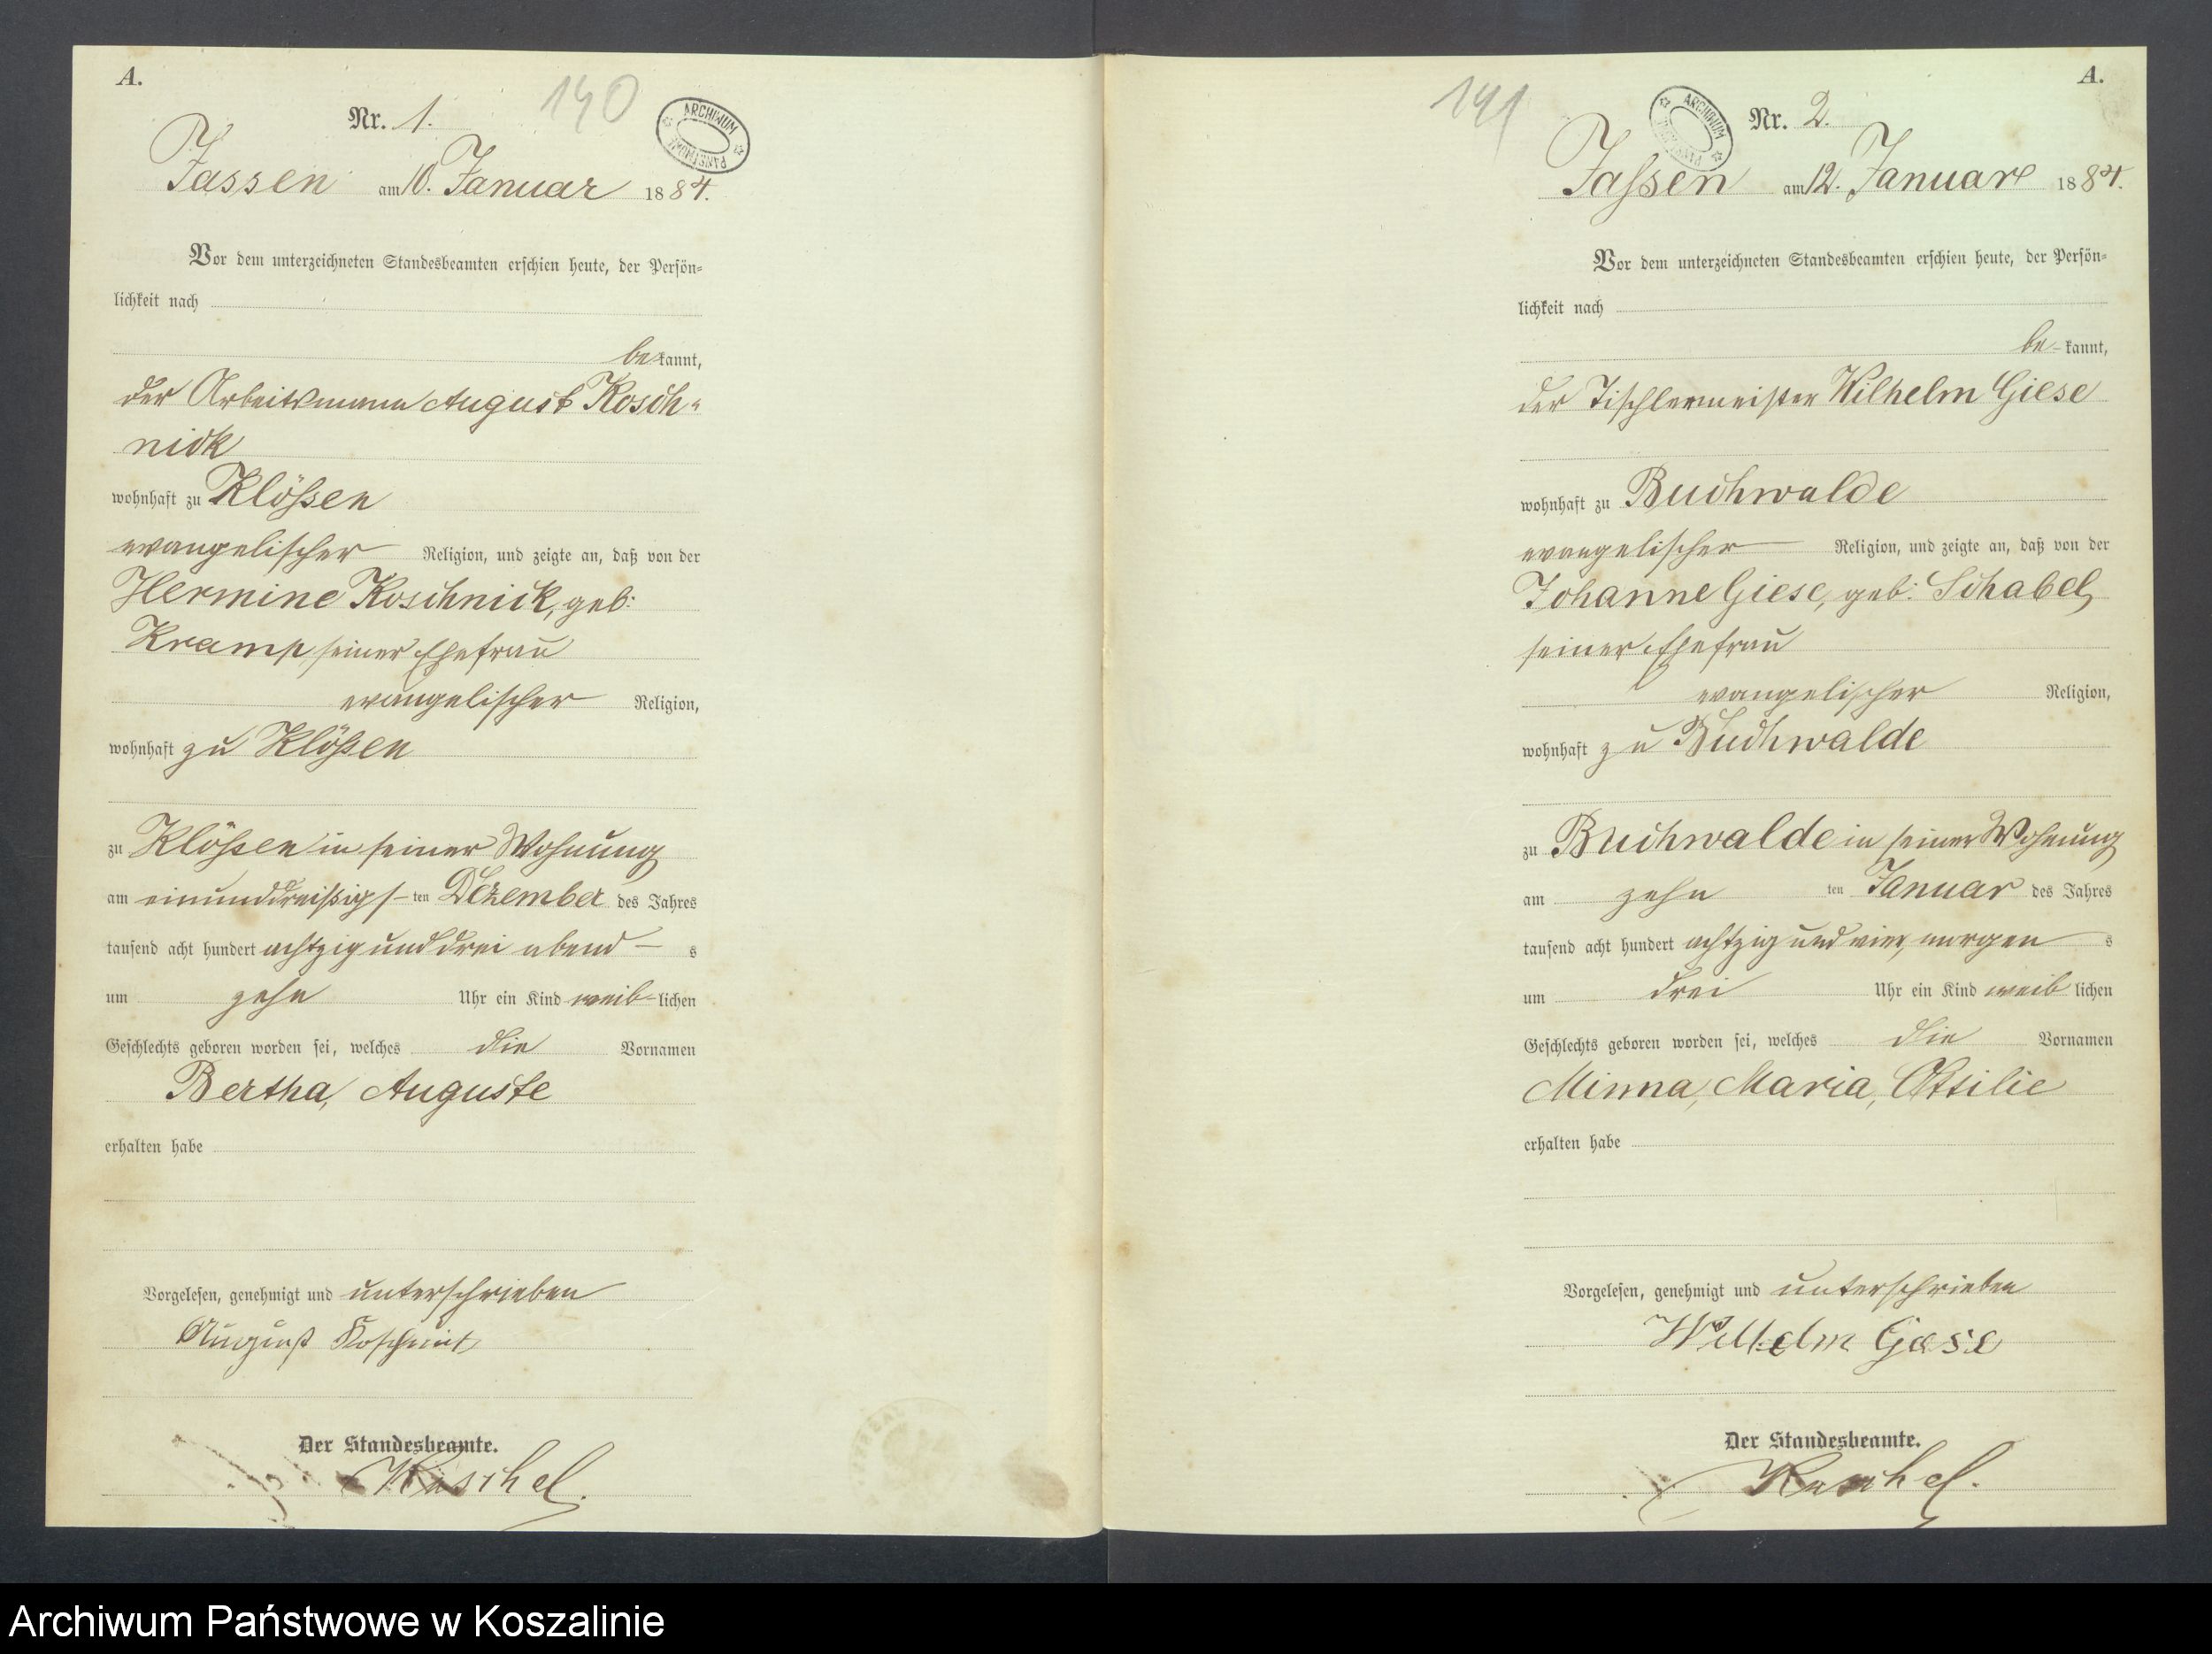 A.
Nr. 1.
140
ARCHIWUM PAŃSTWOWE
Jassen am 10. Januar 1884.
Vor dem unterzeichneten Standesbeamten erschien heute, der Persön-
lichkeit nach
be kannt,
der Arbeitsmann August Kosch-
nick
wohnhaft zu Klößen
evangelischer Religion, und zeigte an, daß von der
Hermine Koschnick, geb:
Kramp, seiner Ehefrau
evangelischer Religion,
wohnhaft zu Klößen
zu Klößen in seiner Wohnung
am einunddreißigs-ten Dezember des Jahres
tausend acht hundert achtzig und drei abend s
um zehn Uhr ein Kind weib-lichen
Geschlechts geboren worden sei, welches die Vornamen
Bertha, Auguste
erhalten habe
Vorgelesen, genehmigt und unterschrieben
August
Der Standesbeamte.
A.
141
ARCHIWUM PAŃSTWOWE
Nr. 2.
Jassen am 12. Januar 1884.
Vor dem unterzeichneten Standesbeamten erschien heute, der Persön-
lichkeit nach
be-kannt,
der Tischlermeister Wilhelm Giese
wohnhaft zu Buchwalde
evangelischer Religion, und zeigte an, daß von der
Johanne Giese, geb: Schabel,
seiner Ehefrau
evangelischer Religion,
wohnhaft zu Buchwalde
zu Buchwalde in seiner Wohnung
am zehn ten Januar des Jahres
tausend acht hundert achtzig und vier, morgen s
um drei Uhr ein Kind weib lichen
Geschlechts geboren worden sei, welches die Vornamen
Minna, Maria, Ottilie
erhalten habe
Vorgelesen, genehmigt und unterschrieben
Wilhelm Giese
Der Standesbeamte.
Archiwum Państwowe w Koszalinie